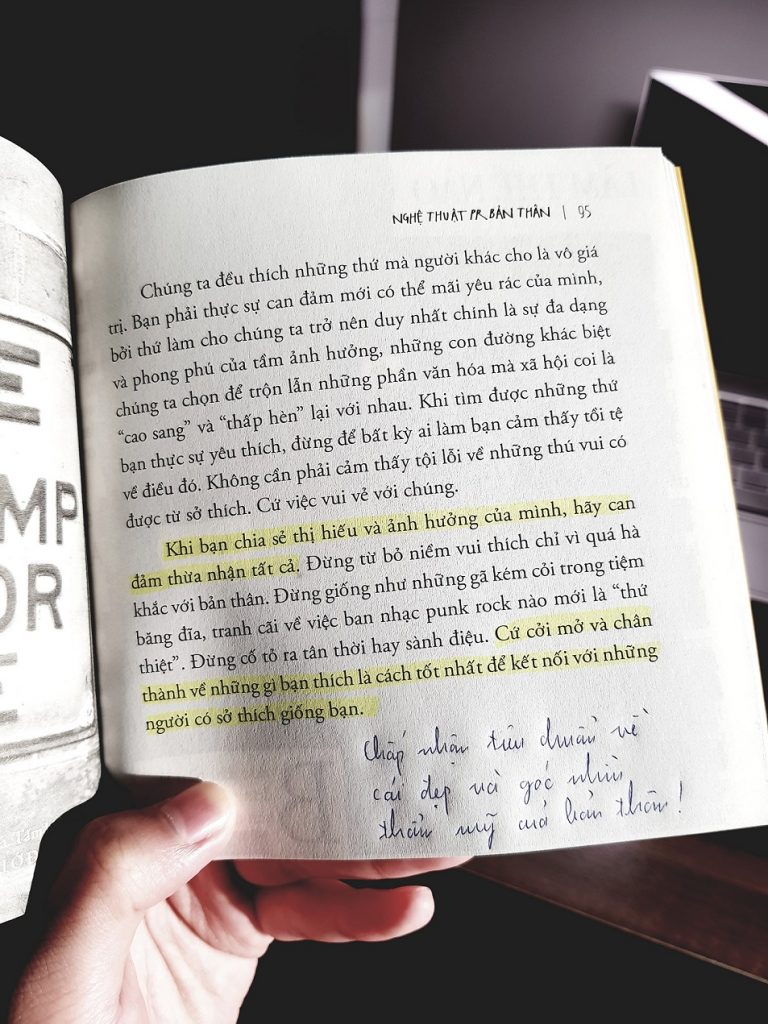 NGHỆ THUẬT PR BẢN THÂN | 95
Chúng ta đều thích những thứ mà người khác cho là vô giá
trị. Bạn phải thực sự can đảm mới có thể mãi yêu rác của mình,
bởi thứ làm cho chúng ta trở nên duy nhất chính là sự đa dạng
và phong phú của tầm ảnh hưởng, những con đường khác biệt
chúng ta chọn để trộn lẫn những phần văn hóa mà xã hội coi là
“cao sang” và “thấp hèn” lại với nhau. Khi tìm được những thứ
bạn thực sự yêu thích, đừng để bất kỳ ai làm bạn cảm thấy tồi tệ
về điều đó. Không cần phải cảm thấy tội lỗi về những thú vui có
được từ sở thích. Cứ việc vui vẻ với chúng.
Khi bạn chia sẻ thị hiếu và ảnh hưởng của mình, hãy can
đảm thừa nhận tất cả. Đừng từ bỏ niềm vui thích chỉ vì quá hà
khắc với bản thân. Đừng giống như những gã kém cỏi trong tiệm
băng đĩa, tranh cãi về việc ban nhạc punk rock nào mới là “thứ
thiệt”. Đừng cố tỏ ra tân thời hay sành điệu. Cứ cởi mở và chân
thành về những gì bạn thích là cách tốt nhất để kết nối với những
người có sở thích giống bạn.
Chấp nhận tiêu chuẩn về
cái đẹp và góc nhìn
thẩm mỹ của bản thân!
E
MP
OR
E